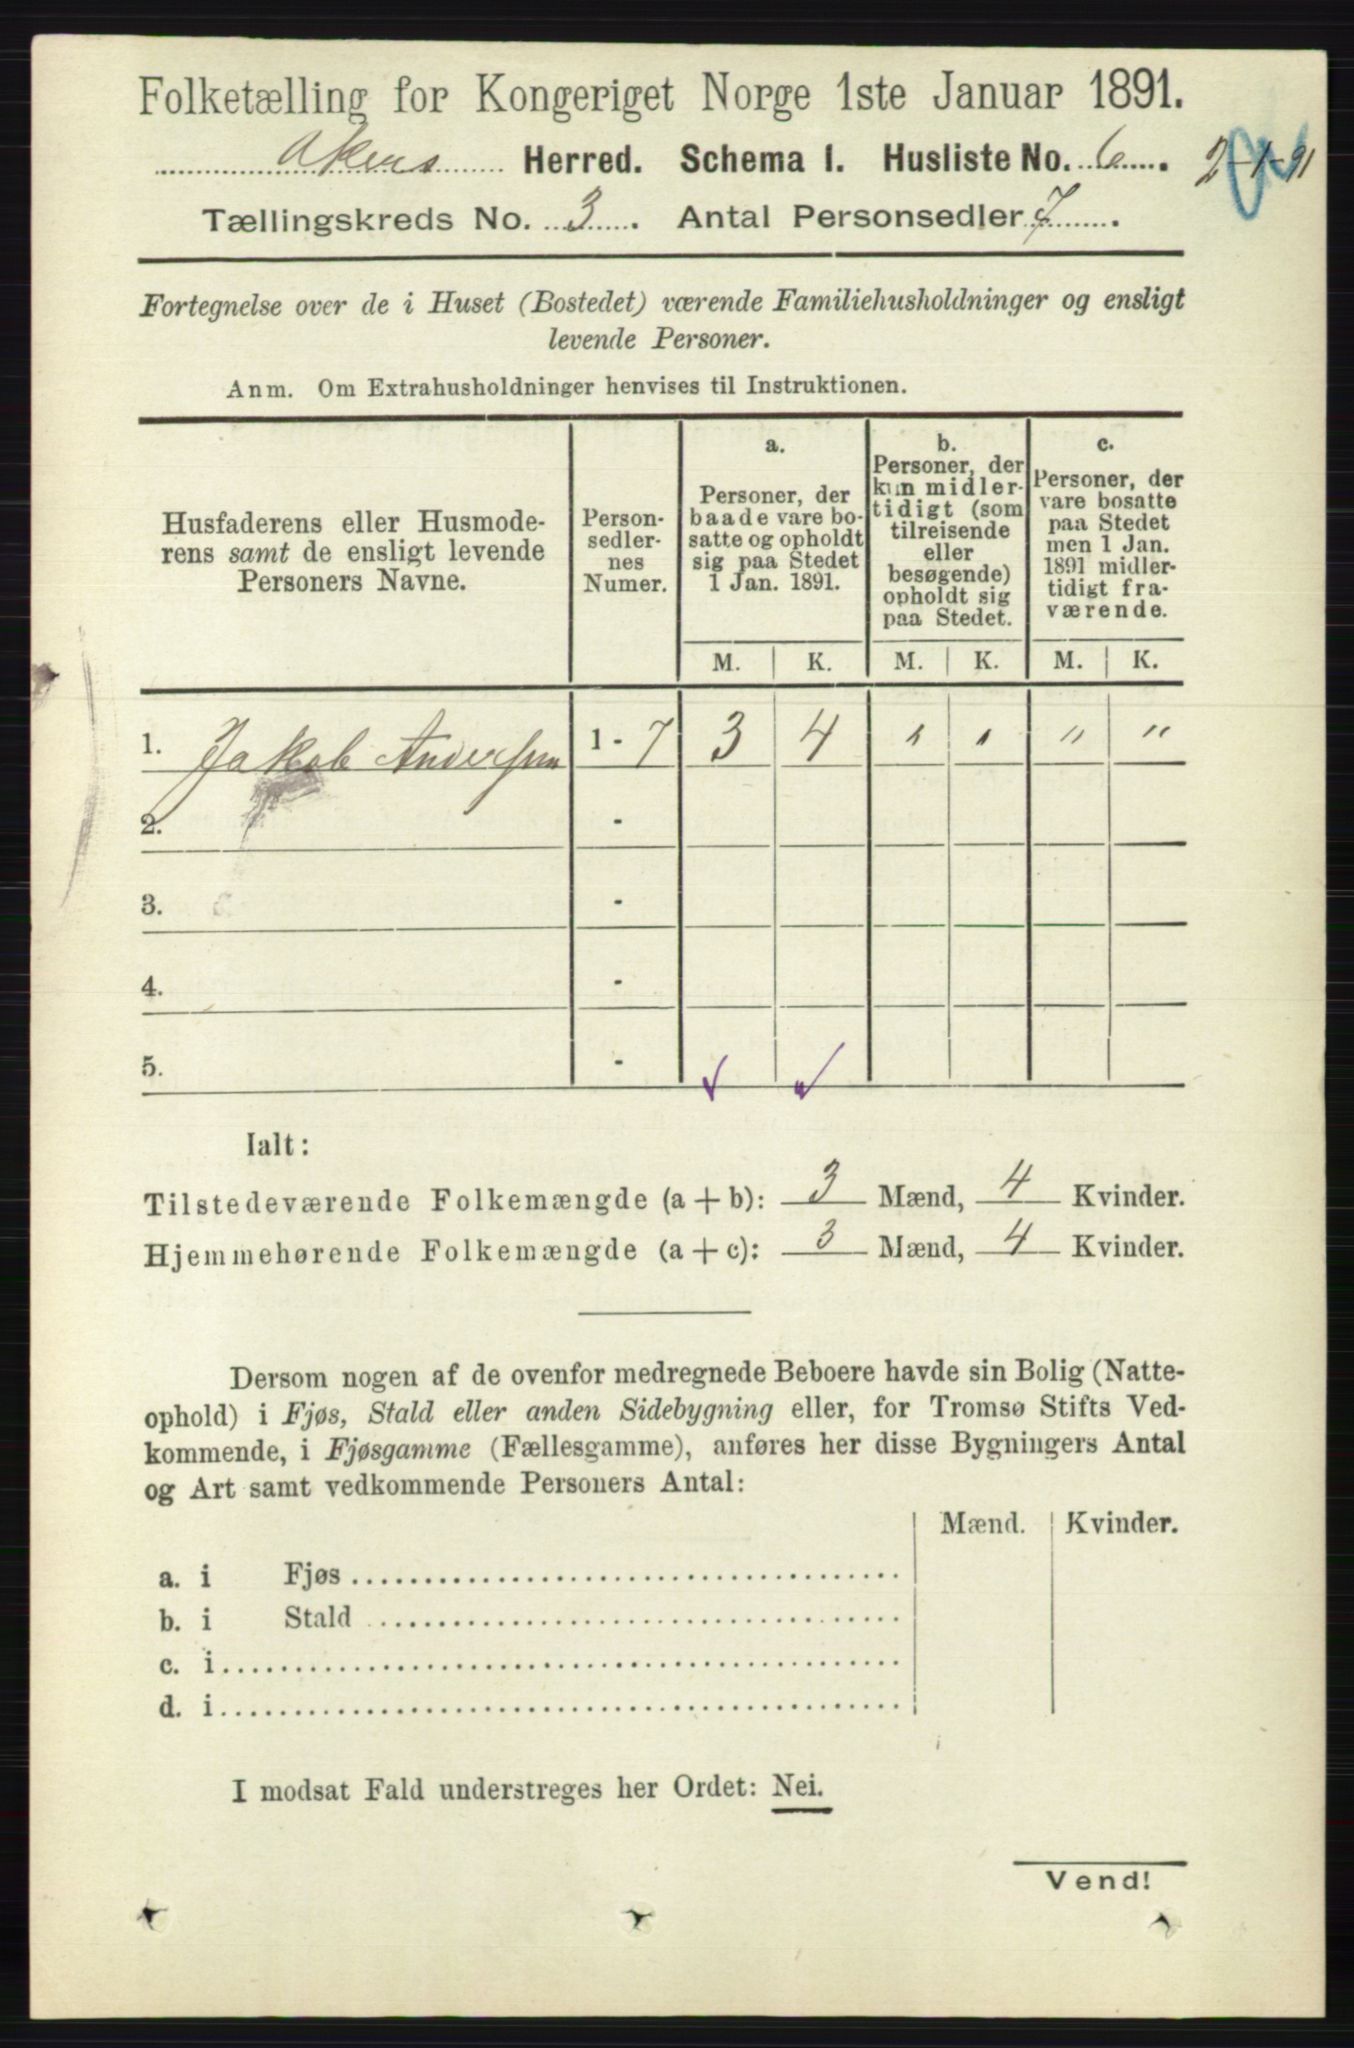 Folketælling for Kongeriget Norge 1ste Januar 1891.
Akers Herred. Schema 1. Husliste No. 6. 2-1-91
Tællingskreds No. 3. Antal Personsedler 7.
Fortegnelse over de i Huset (Bostedet) værende Familiehusholdninger og ensligt
levende Personer.
Anm. Om Extrahusholdninger henvises til Instruktionen.
Husfaderens eller Husmode-
rens samt de ensligt levende
Personers Navne.
Person-
sedler-
nes
Numer.
a.
Personer, der
baade vare bo-
satte og opholdt
sig paa Stedet
1 Jan. 1891.
b.
Personer, der
kun midler-
tidigt (som
tilreisende
eller
besøgende)
opholdt sig
paa Stedet.
c.
Personer, der
vare bosatte
paa Stedet
men 1 Jan.
1891 midler-
tidigt fra-
værende.
M. K. M. K. M. K.
1. Jakob Andersen 1 - 7 3 4 " " " "
2. -
3. -
4. -
5. -
Ialt:
Tilstedeværende Folkemængde (a + b): 3 Mænd, 4 Kvinder.
Hjemmehørende Folkemængde (a + c): 3 Mænd, 4 Kvinder.
Dersom nogen af de ovenfor medregnede Beboere havde sin Bolig (Natte-
ophold) i Fjøs, Stald eller anden Sidebygning eller, for Tromsø Stifts Ved-
kommende, i Fjøsgamme (Fællesgamme), anføres her disse Bygningers Antal
og Art samt vedkommende Personers Antal:
Mænd. Kvinder.
a. i Fjøs
b. i Stald
c. i
d. i
I modsat Fald understreges her Ordet: Nei.
Vend!